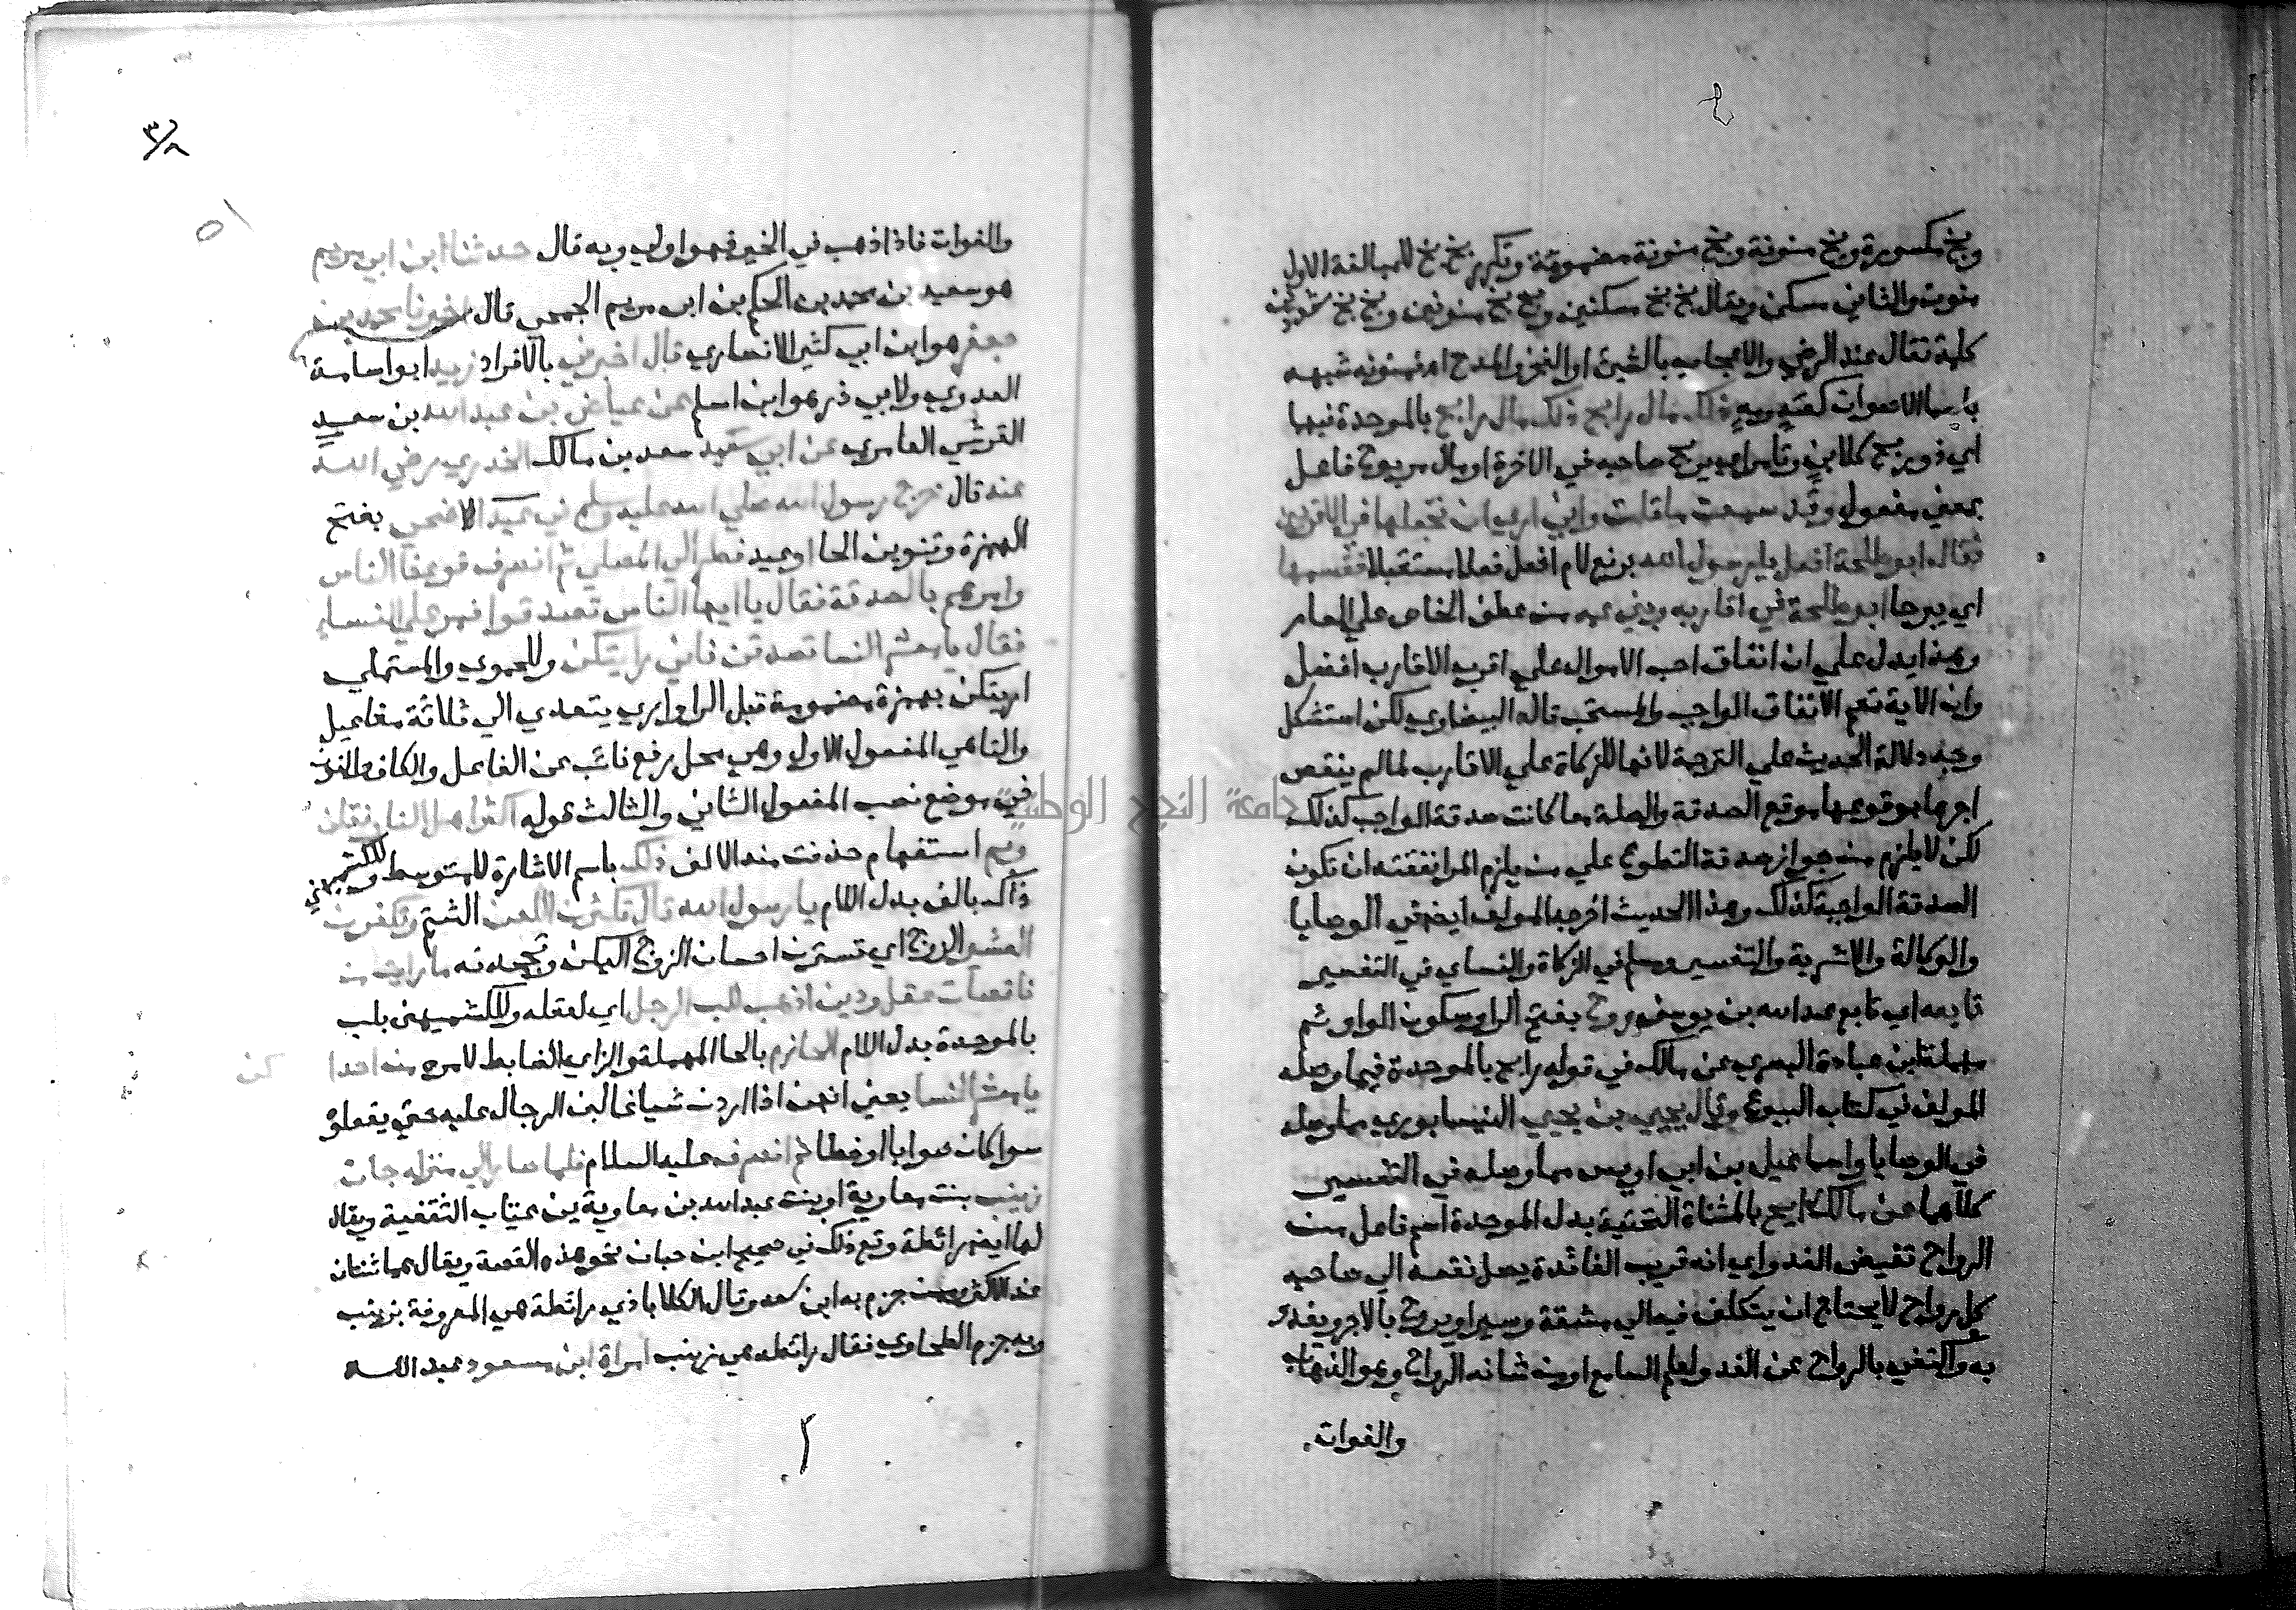 وبخ مكسورة وبخ منونة وبخ منونة مضمومة وتكرير بخ بخ للمبالغة الاول
منون والثاني مسكن ويقال بخ بخ مسكنين وبخ بخ منونين وبخ بخ مشددين
كلمة تقال عند الرضي والاعجاب بالشئ او الفخر والمدح
باسما الاصوات كصه ومه ذلك مال رابح ذلك مال رابح بالموحدة فيهما
اي ذو ربح كلابن وتامر اي يربح صاحبه في الاخرة او مال مربوح فاعل
بمعني مفعول وقد سمعت ما قلت واني اري ان تجعلها في الاقربين
فقال ابو طلحة افعل يا رسول الله برفع لام افعل فعلا مستقبلا فقسمها
اي بيرحا ابو طلحة في اقاربه وبني عمه من عطف الخاص علي العام
وهذا يدل علي ان انفاق احب الاموال علي اقرب الاقارب افضل
وان الاية تعم الانفاق الواجب والمستحب قاله البيضاوي لكن استشكل
وجه دلالة الحديث علي الترجمة لانها للزكاة علي الاقارب لما لم ينقص
اجرها بوقوعها موقع الصدقة والصلة معا كانت صدقة الواجب كذلك
لكن لا يلزم من جواز صدقة التطوع علي من يلزم المرا نفقته ان تكون
الصدقة الواجبة كذلك وهذا الحديث اخرجه المولف ايضا في الوصايا
والوكالة والاشربة والتفسير ومسلم في الزكاة والنساي في التفسير
تابعه اي تابع عبد الله بن يوسف روح بفتح الرا وسكون الواو ثم
مهملة ابن عبادة البصري عن مالك في قوله رابح بالموحدة فيما وصله
المولف في كتاب البيوع وقال يحيي بن يحيي النيسابوري مما وصله
في الوصايا واسماعيل بن ابي اويس مما وصله في التفسير
كلاهما عن مالك رايح بالمثناة التحتية بدل الموحدة اسم فاعل من
الرواح نقيض الغدو اي انه قريب الفائدة يصل نفعه الي صاحبه
كل رواح لا يحتاج ان يتكلف فيه الي مشقة وسير او يروح بالاجر ويغدو
به واكتفي بالرواح عن الغدو لعلم السامع او من شانه الرواح وهو الذهاب
والفوات
والفوات فاذا ذهب في الخير فهو اولي وبه قال حدثنا ابن ابي مريم
هو سعيد بن محمد بن الحكم بن ابي مريم الجمحي قال اخبرنا محمد بن
جعفر هو ابن ابي كثير الانصاري قال اخبرني بالافراد زيد ابو اسامة
العدوي ولابي ذر هو ابن اسلم عن عياض بن عبد الله بن سعيد
القرشي العامري عن ابي سعيد سعد بن مالك الخدري رضي الله
عنه قال خرج رسول الله صلي الله عليه وسلم في عيد الاضحي بفتح
الهمزة وتنوين الحا او عيد فطر الي المصلي ثم انصرف فوعظ الناس
وامرهم بالصدقة فقال يا ايها الناس تصدقوا فمر علي النساء
فقال يا معشر النسا تصدقن فاني رايتكن وللحموي والمستملي
اريتكن بهمزة مضمومة قبل الرا واري يتعدي الي ثلاثة مفاعيل
والتا هي المفعول الاول وهي محل رفع نائب عن الفاعل والكاف والنون
في موضع نصب المفعول الثاني والثالث قوله اكثر اهل النار فقلن
وبم استفهام حذفت منه الالف ذلك باسم الاشارة للمتوسط وللكشميهني
ذاك بالف بدل اللام يا رسول الله قال تكثرن اللعن الشتم وتكفرن
العشير الزوج اي تسترن احسان الزوج اليكن وتجحدنه ما رايت من
ناقصات عقل ودين اذهب للب الرجل اي لعقله وللكشميهني بلب
بالموحدة بدل اللام الحازم بالحا المهملة والزاي الضابط لامره من احدا كن
يا معشر النسا يعني انهن اذا اردن شيا غالبن الرجال عليه حتي يفعلوه
سوا كان صوابا او خطا ثم انصرف عليه السلام فلما صار الي منزله جات
زينب بنت معاوية او بنت عبد الله بن معاوية بن عتاب الثقفية ويقال
لها ايضا رائطة وقع ذلك في صحيح ابن حبان نحو هذه القصة ويقال هما ثنتان
عند الاكثر وممن جزم به ابن سعد وقال الكلاباذي رائطة هي المعروفة بزينب
وبه جزم الطحاوي فقال رائطه هي زينب امراة ابن مسعود عبد الله